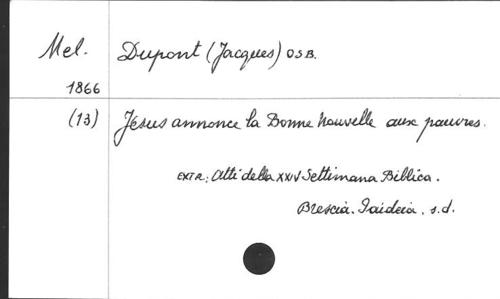 Mel. Dupont (Jacques) O.S.B.
1866
(13) Jésus annonce la Bonne Nouvelle aux pauvres.
EXTR: Atti della XXIV Settimana Biblica.
Brescia. Paideia. s.d.